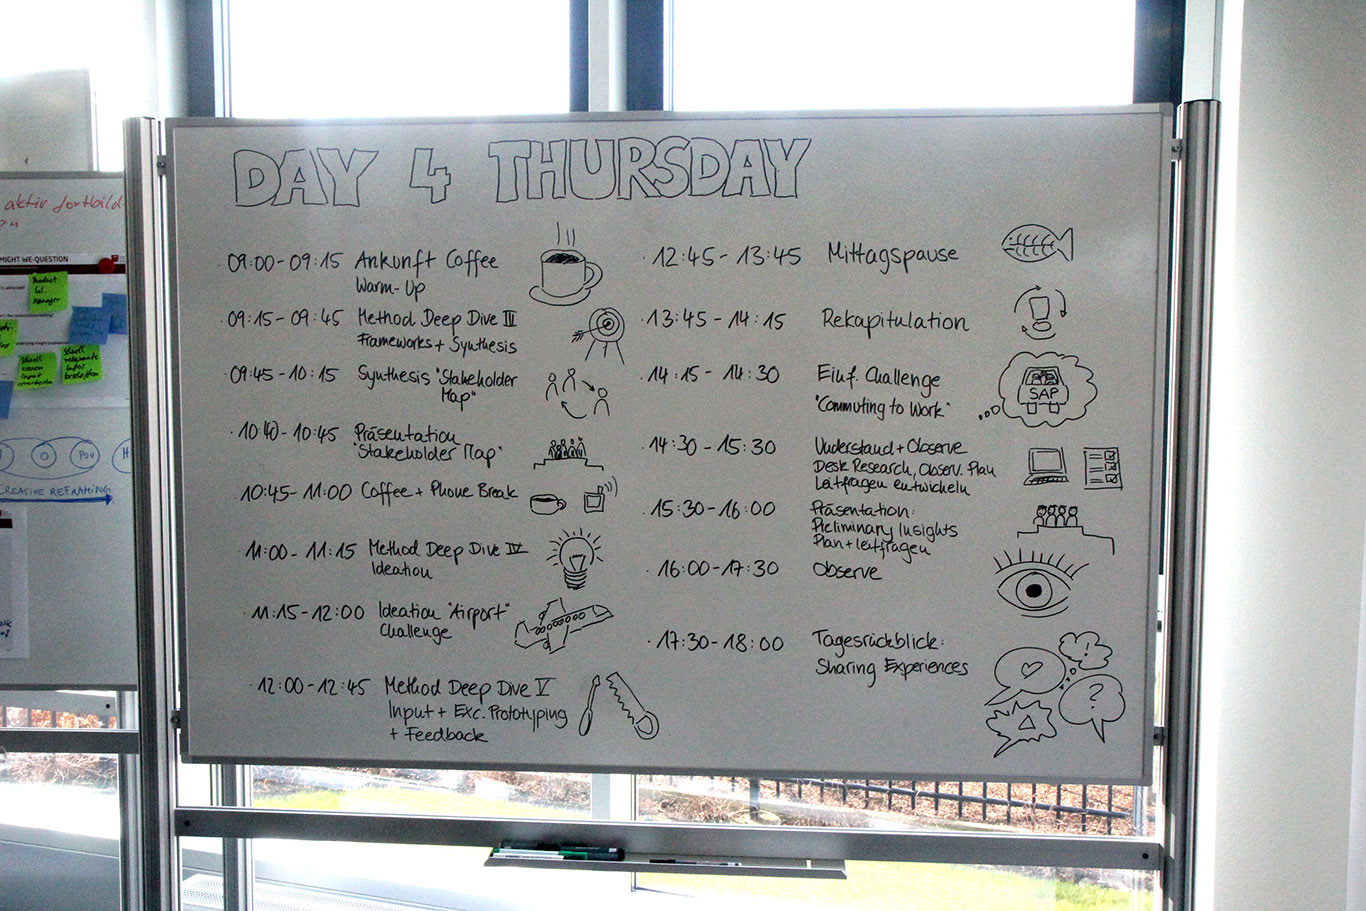 DAY 4 THURSDAY
09:00-09:15 Ankunft Coffee
Warm-Up
09:15-09:45 Method Deep Dive III
Frameworks + Synthesis
09:45-10:15 Synthesis "Stakeholder
Map"
10:40-10:45 Präsentation
"Stakeholder Map"
10:45-11:00 Coffee + Phone Break
11:00-11:15 Method Deep Dive IV
Ideation
11:15-12:00 Ideation "Airport"
Challenge
12:00-12:45 Method Deep Dive V
Input + Exc. Prototyping
+ Feedback
12:45-13:45 Mittagspause
13:45-14:15 Rekapitulation
14:15-14:30 Einf. Challenge
"Commuting to Work"
SAP
14:30-15:30 Understand + Observe
Desk Research, Observ. Plan
Leitfragen entwickeln
15:30-16:00 Präsentation:
Preliminary Insights
Plan + leitfragen
16:00-17:30 Observe
17:30-18:00 Tagesrückblick:
Sharing Experiences
!
?
aktiv fortbild
MIGHT WE-QUESTION
Product
Sol.
Manager
Schnell
relevante
Infos
POV
CREATIVE REFRAMING